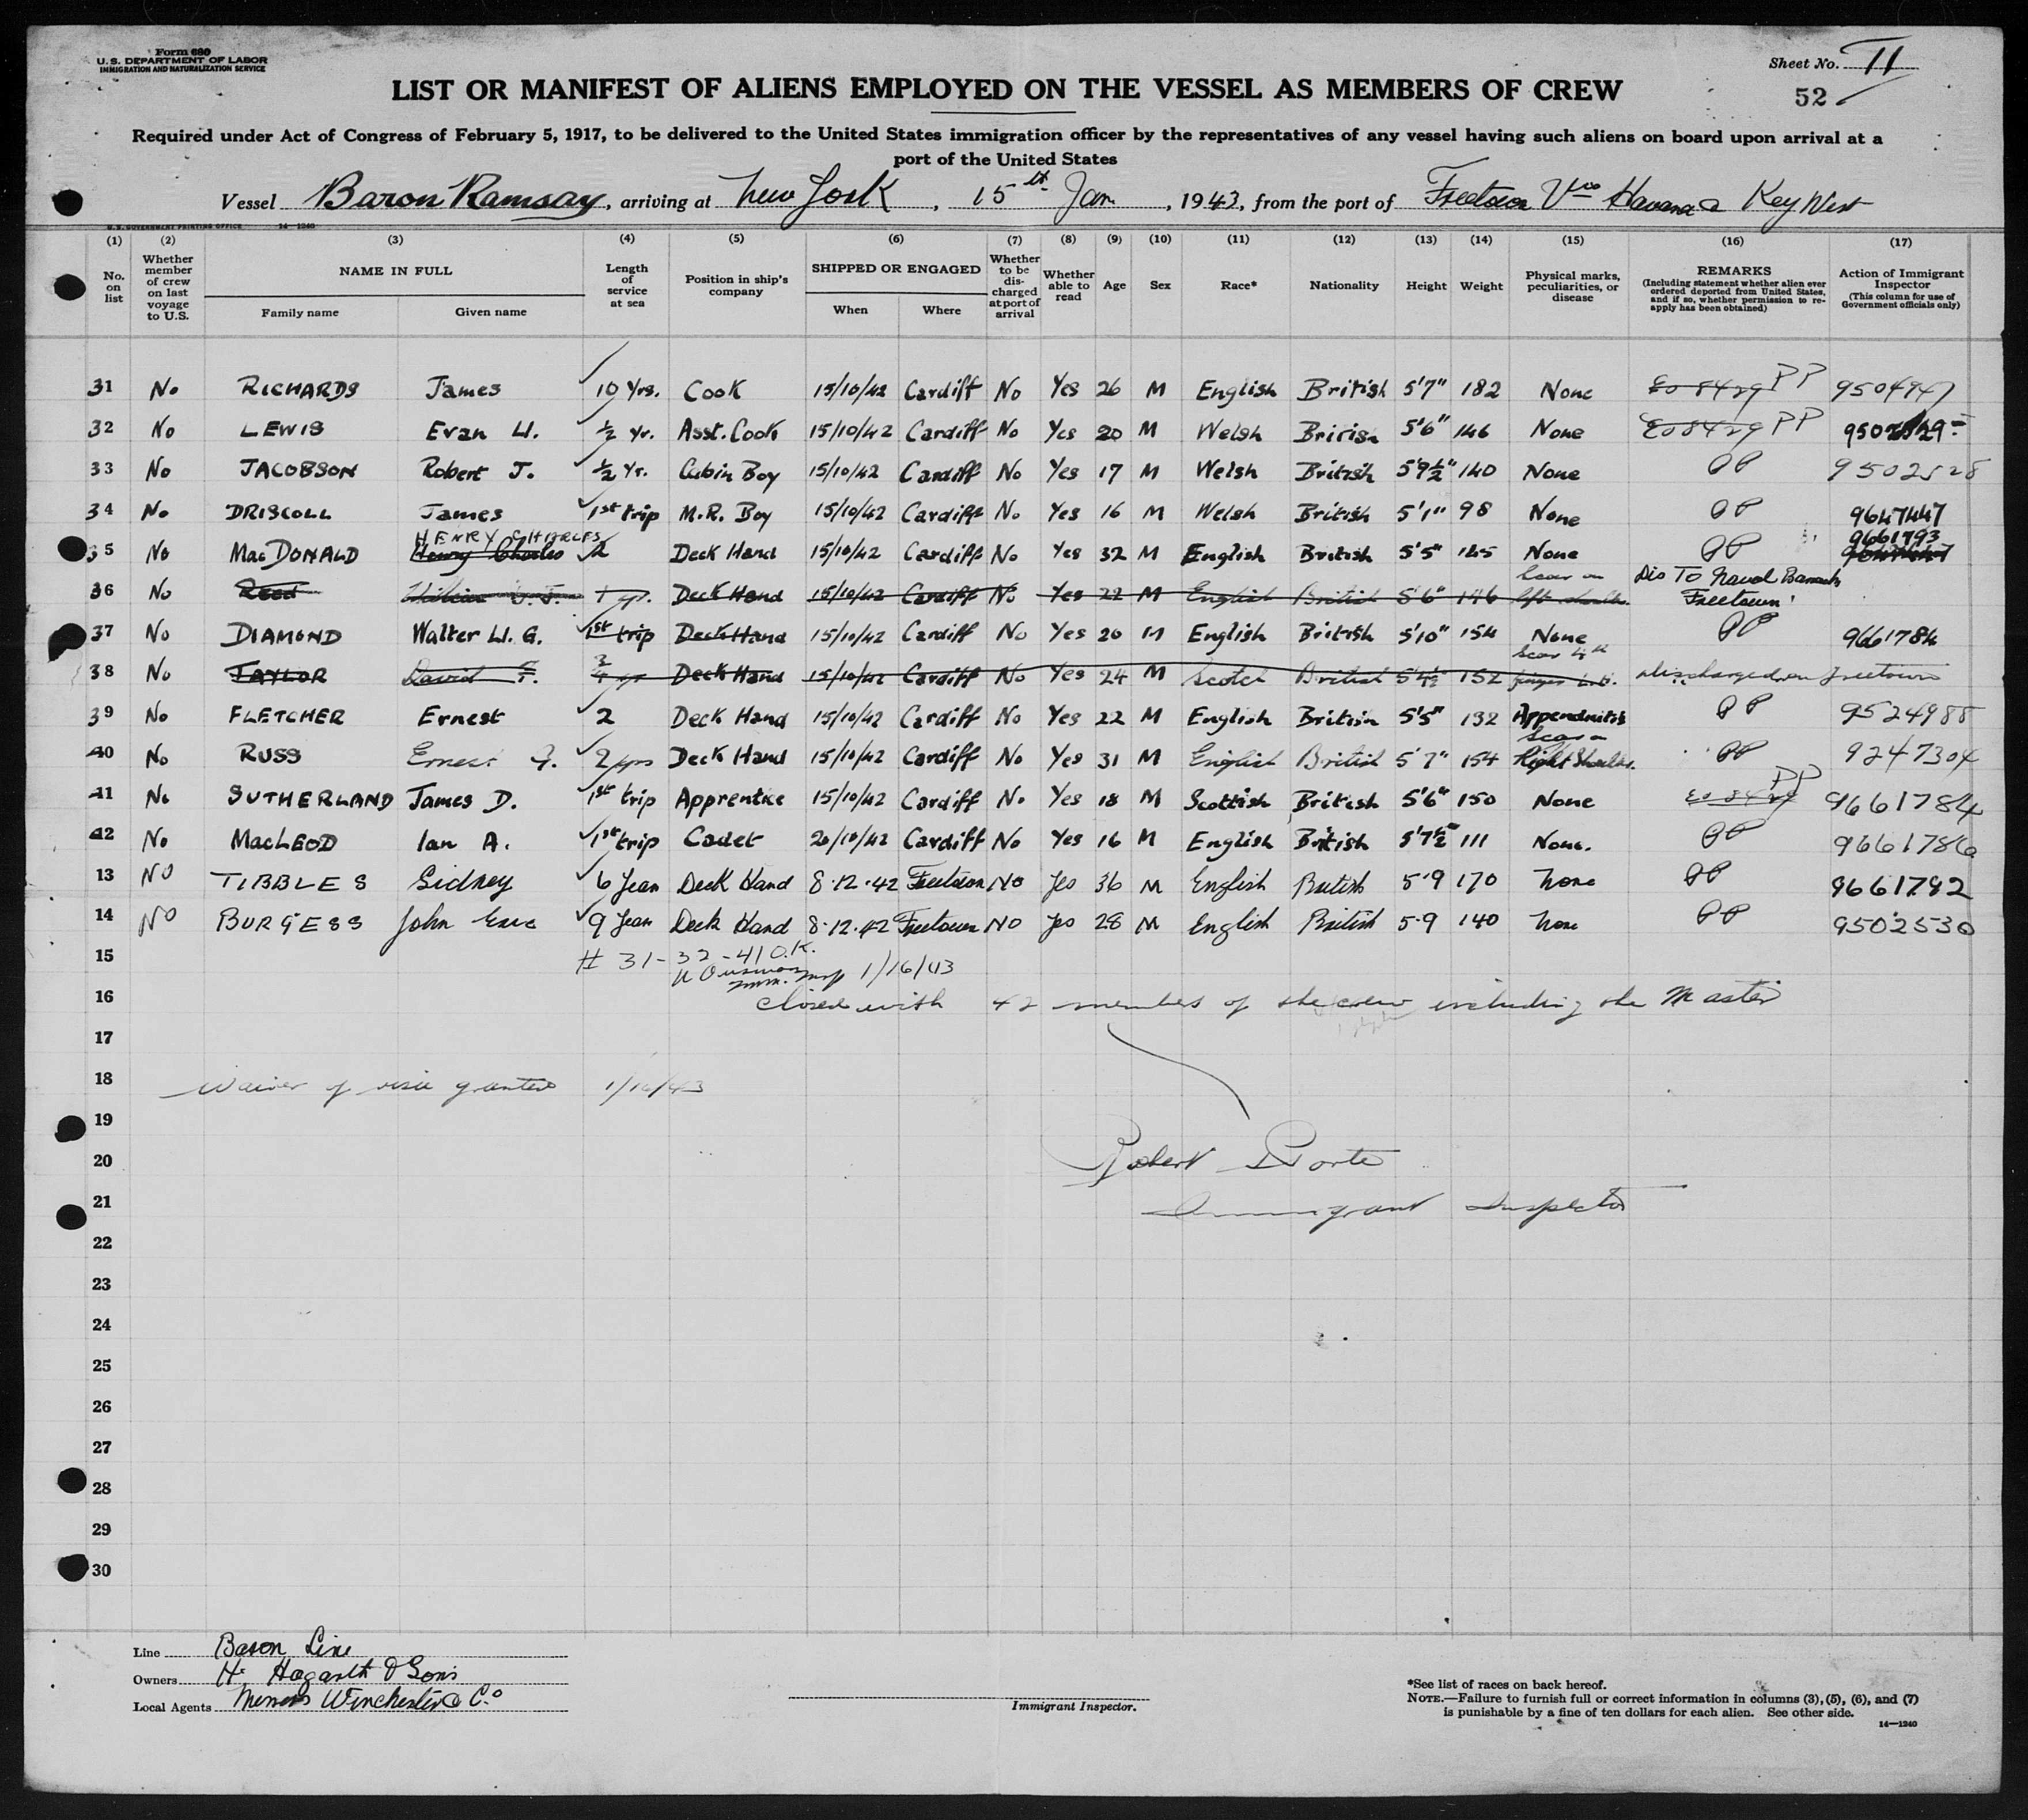 Form 680
U. S. DEPARTMENT OF LABOR
IMMIGRATION AND NATURALIZATION SERVICE
Sheet No. 11
52
LIST OR MANIFEST OF ALIENS EMPLOYED ON THE VESSEL AS MEMBERS OF CREW
Required under Act of Congress of February 5, 1917, to be delivered to the United States immigration officer by the representatives of any vessel having such aliens on board upon arrival at a
port of the United States
Vessel Baron Ramsay, arriving at New York, 15th Jan, 1943, from the port of Freetown Via Havana & Key West
U. S. GOVERNMENT PRINTING OFFICE 14—1240
(1) (2) (3) (4) (5) (6) (7) (8) (9) (10) (11) (12) (13) (14) (15) (16) (17)
No. on list Whether member of crew on last voyage to U.S. NAME IN FULL Family name Given name Length of service at sea Position in ship's company SHIPPED OR ENGAGED When Where Whether to be discharged at port of arrival Whether able to read Age Sex Race* Nationality Height Weight Physical marks, peculiarities, or disease REMARKS (Including statement whether alien ever ordered deported from United States, and if so, whether permission to reapply has been obtained) Action of Immigrant Inspector (This column for use of Government officials only)
31 No RICHARDS James 10 Yrs. Cook 15/10/42 Cardiff No Yes 26 M English British 5'7" 182 None Eo 8429 PP 9504947
32 No LEWIS Evan W. ½ Yr. Asst. Cook 15/10/42 Cardiff No Yes 20 M Welsh British 5'6" 146 None Eo 8429 PP
33 No JACOBSON Robert J. ½ Yr. Cabin Boy 15/10/42 Cardiff No Yes 17 M Welsh British 5'9½" 140 None PP 9502528
34 No DRISCOLL James 1st trip M.R. Boy 15/10/42 Cardiff No Yes 16 M Welsh British 5'1" 98 None PP 9647447
HENRY CHARLES 9661793
35 No MacDONALD Henry Charles 2 Deck Hand 15/10/42 Cardiff No Yes 32 M English British 5'5" 145 None PP
36 No Reed 1 yr. Deck Hand 15/10/42 Cardiff No Yes 22 M English British 5'6" 146 Scar on left shoulder. Dis To Naval Barracks Freetown
37 No DIAMOND Walter W. G. 1st trip Deck Hand 15/10/42 Cardiff No Yes 20 M English British 5'10" 154 None PP 9661784
38 No TAYLOR David F. ¾ yr Deck Hand 15/10/42 Cardiff No Yes 24 M Scotch British 5'4½" 152 Scar 4th finger discharged on Freetown
39 No FLETCHER Ernest 2 Deck Hand 15/10/42 Cardiff No Yes 22 M English British 5'5" 132 Appendicitis PP 9524988
40 No RUSS Ernest G. 2 yrs Deck Hand 15/10/42 Cardiff No Yes 31 M English British 5'7" 154 Scar on Right Shoulder. PP 9247304
41 No SUTHERLAND James D. 1st trip Apprentice 15/10/42 Cardiff No Yes 18 M Scottish British 5'6" 150 None Eo 8429 PP 9661784
42 No MacLEOD Ian A. 1st trip Cadet 20/10/42 Cardiff No Yes 16 M English British 5'7½" 111 None. PP 9661786
13 NO TIBBLES Sidney 6 Years Deck Hand 8.12.42 Freetown NO Yes 36 M English British 5.9 170 None PP 9661792
14 NO BURGESS John Eric 9 Years Deck Hand 8.12.42 Freetown NO Yes 28 M English British 5.9 140 None PP 9502530
15 # 31-32-41 O.K.
Imm. Insp 1/16/43
16 Closed with 42 members of the crew including the Master
17
18 Waiver of visa granted 1/16/43
19
20 Robert Porte
21 Immigrant Inspector
22
23
24
25
26
27
28
29
30
Line Baron Line
Owners H. Hogarth & Sons
Local Agents Messrs Winchester & Co
Immigrant Inspector.
*See list of races on back hereof.
NOTE.—Failure to furnish full or correct information in columns (3), (5), (6), and (7)
is punishable by a fine of ten dollars for each alien. See other side.
14—1240